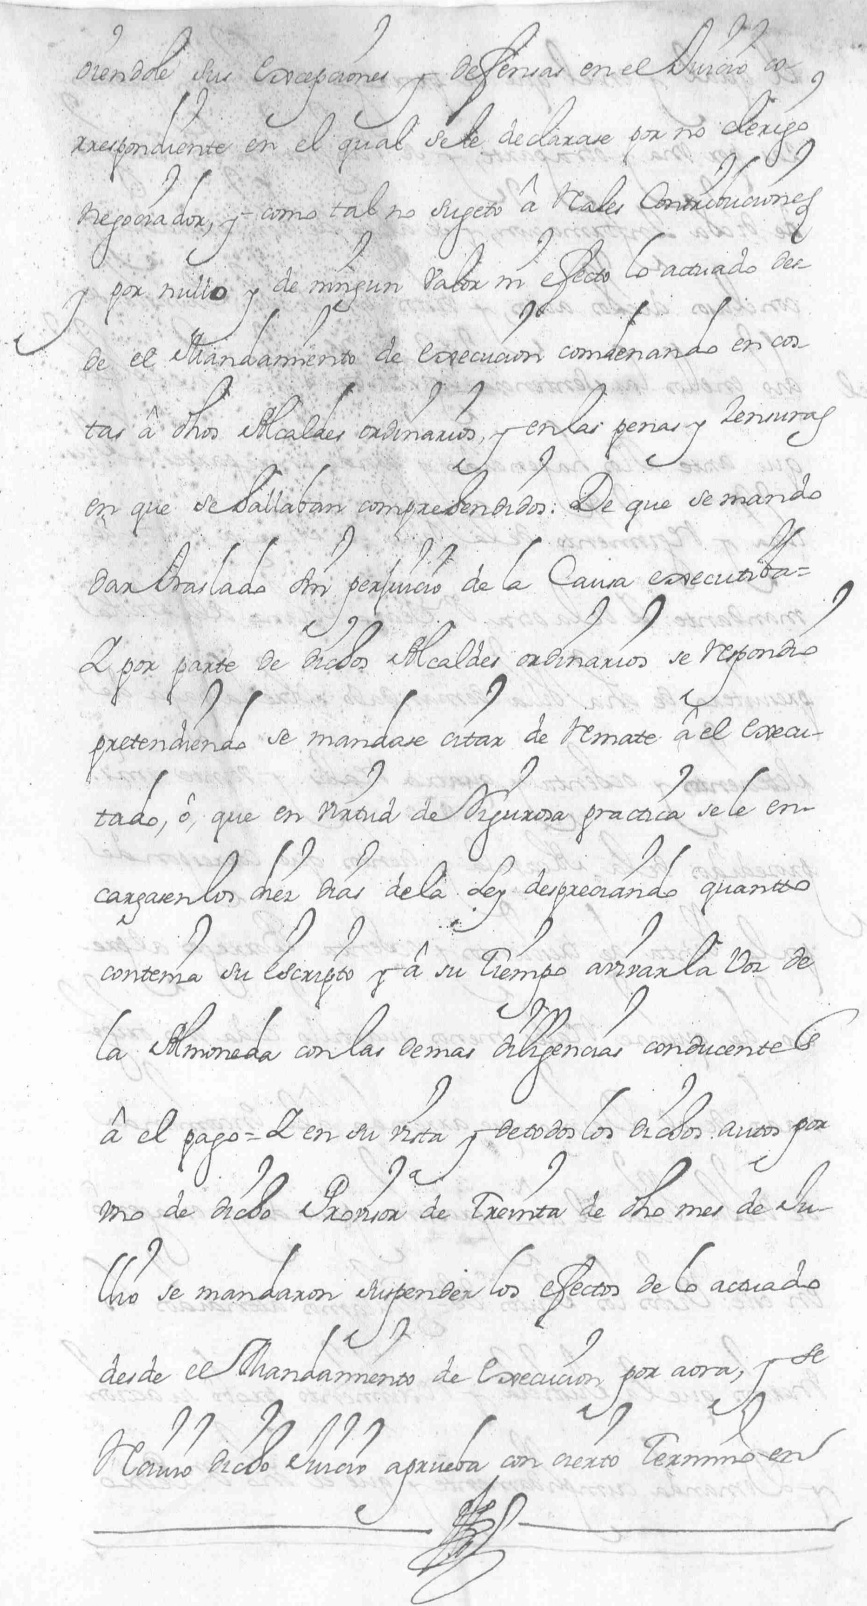 oiendole sus Excepciones y defensas en el Juicio co-
rrespondiente en el qual se le declarase por no clerigo
Negociador, y como tal no sugeto â Rales Contribuciones
y por nullo y de ningun valor ni efecto lo actuado des-
de el Mandamiento de execucion condenando en cos
tas â dhos Alcaldes ordinarios, y en las penas y Zensuras
en que se hallaban comprehendidos: De que se mando
dar traslado sin perjuicio de la Causa executiba=
Y por parte de dichos Alcaldes ordinarios se respondio
pretendiendo se mandase citar de Remate â el execu-
tado, ô, que en virtud de Rigurosa practica se le en-
cargasen los diez dias de la Ley despreciando quantto
contenia su escripto y â su Tiempo avivar la Voz de
la Almoneda con las demas diligencias conducentes
â el pago= Y en su vista y de todos los dichos autos por
uno de dicho Provisor de Treinta de dho mes de Ju-
llio se mandaron suspender los efectos de lo actuado
desde el Mandamiento de Execucion por aora, y se
Reciuio dicho Juicio aprueba con cierto Termino en